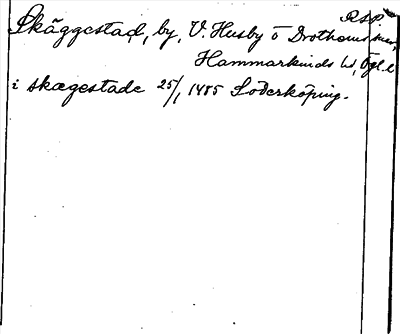 RSP
Skäggestad, by, V. Husby o Drothems snr,
Hammarkinds hd, Ögl.
i skægestade 25/1 1485 Söderköping.